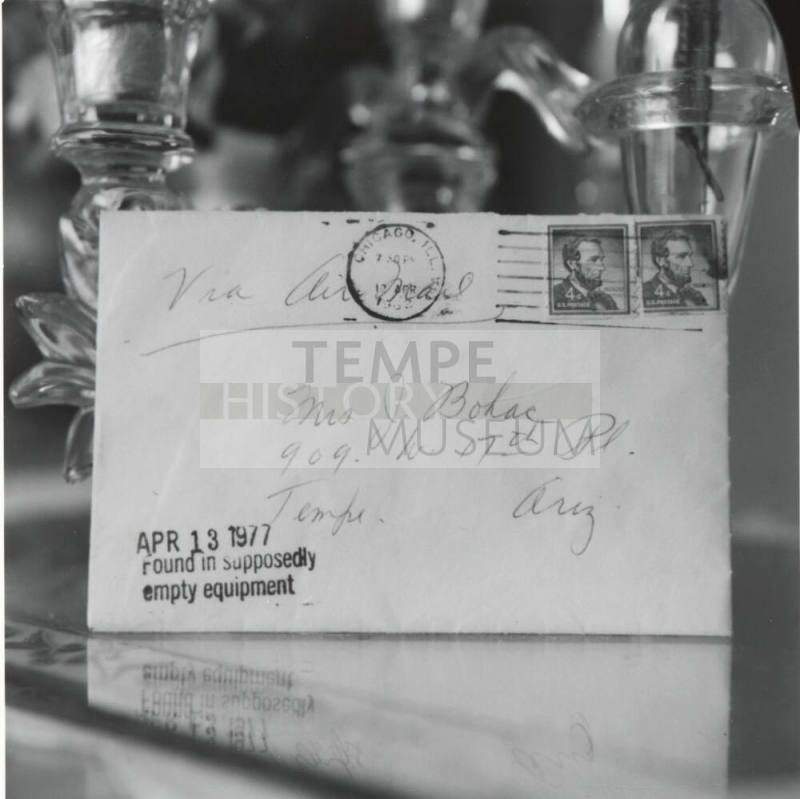 CHICAGO, ILL.
APR
Via Air Mail
4¢ 4¢
U.S. POSTAGE U.S. POSTAGE
TEMPE
HISTORY
MUSEUM
Mrs Bohac
909. Pl.
Tempe. Ariz
APR 13 1977
Found in supposedly
empty equipment